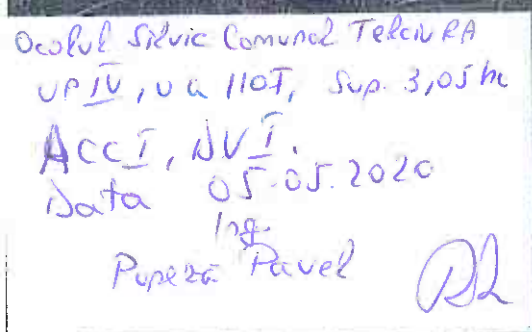 Ocolul Silvic Comunal Telciu RA
UP IV, ua 110I, Sup. 3,05 ha
ACC I, NV I.
Data 05.05.2020
Ing.
Pavel